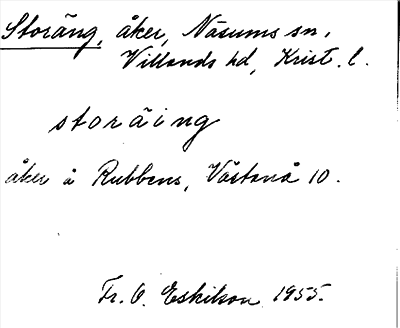 Storäng, åker, Näsums sn,
Villands hd, Krist. l.
storäing
åker å Rubbens, Västanå 10.
Fr. O. Eskilson 1955.